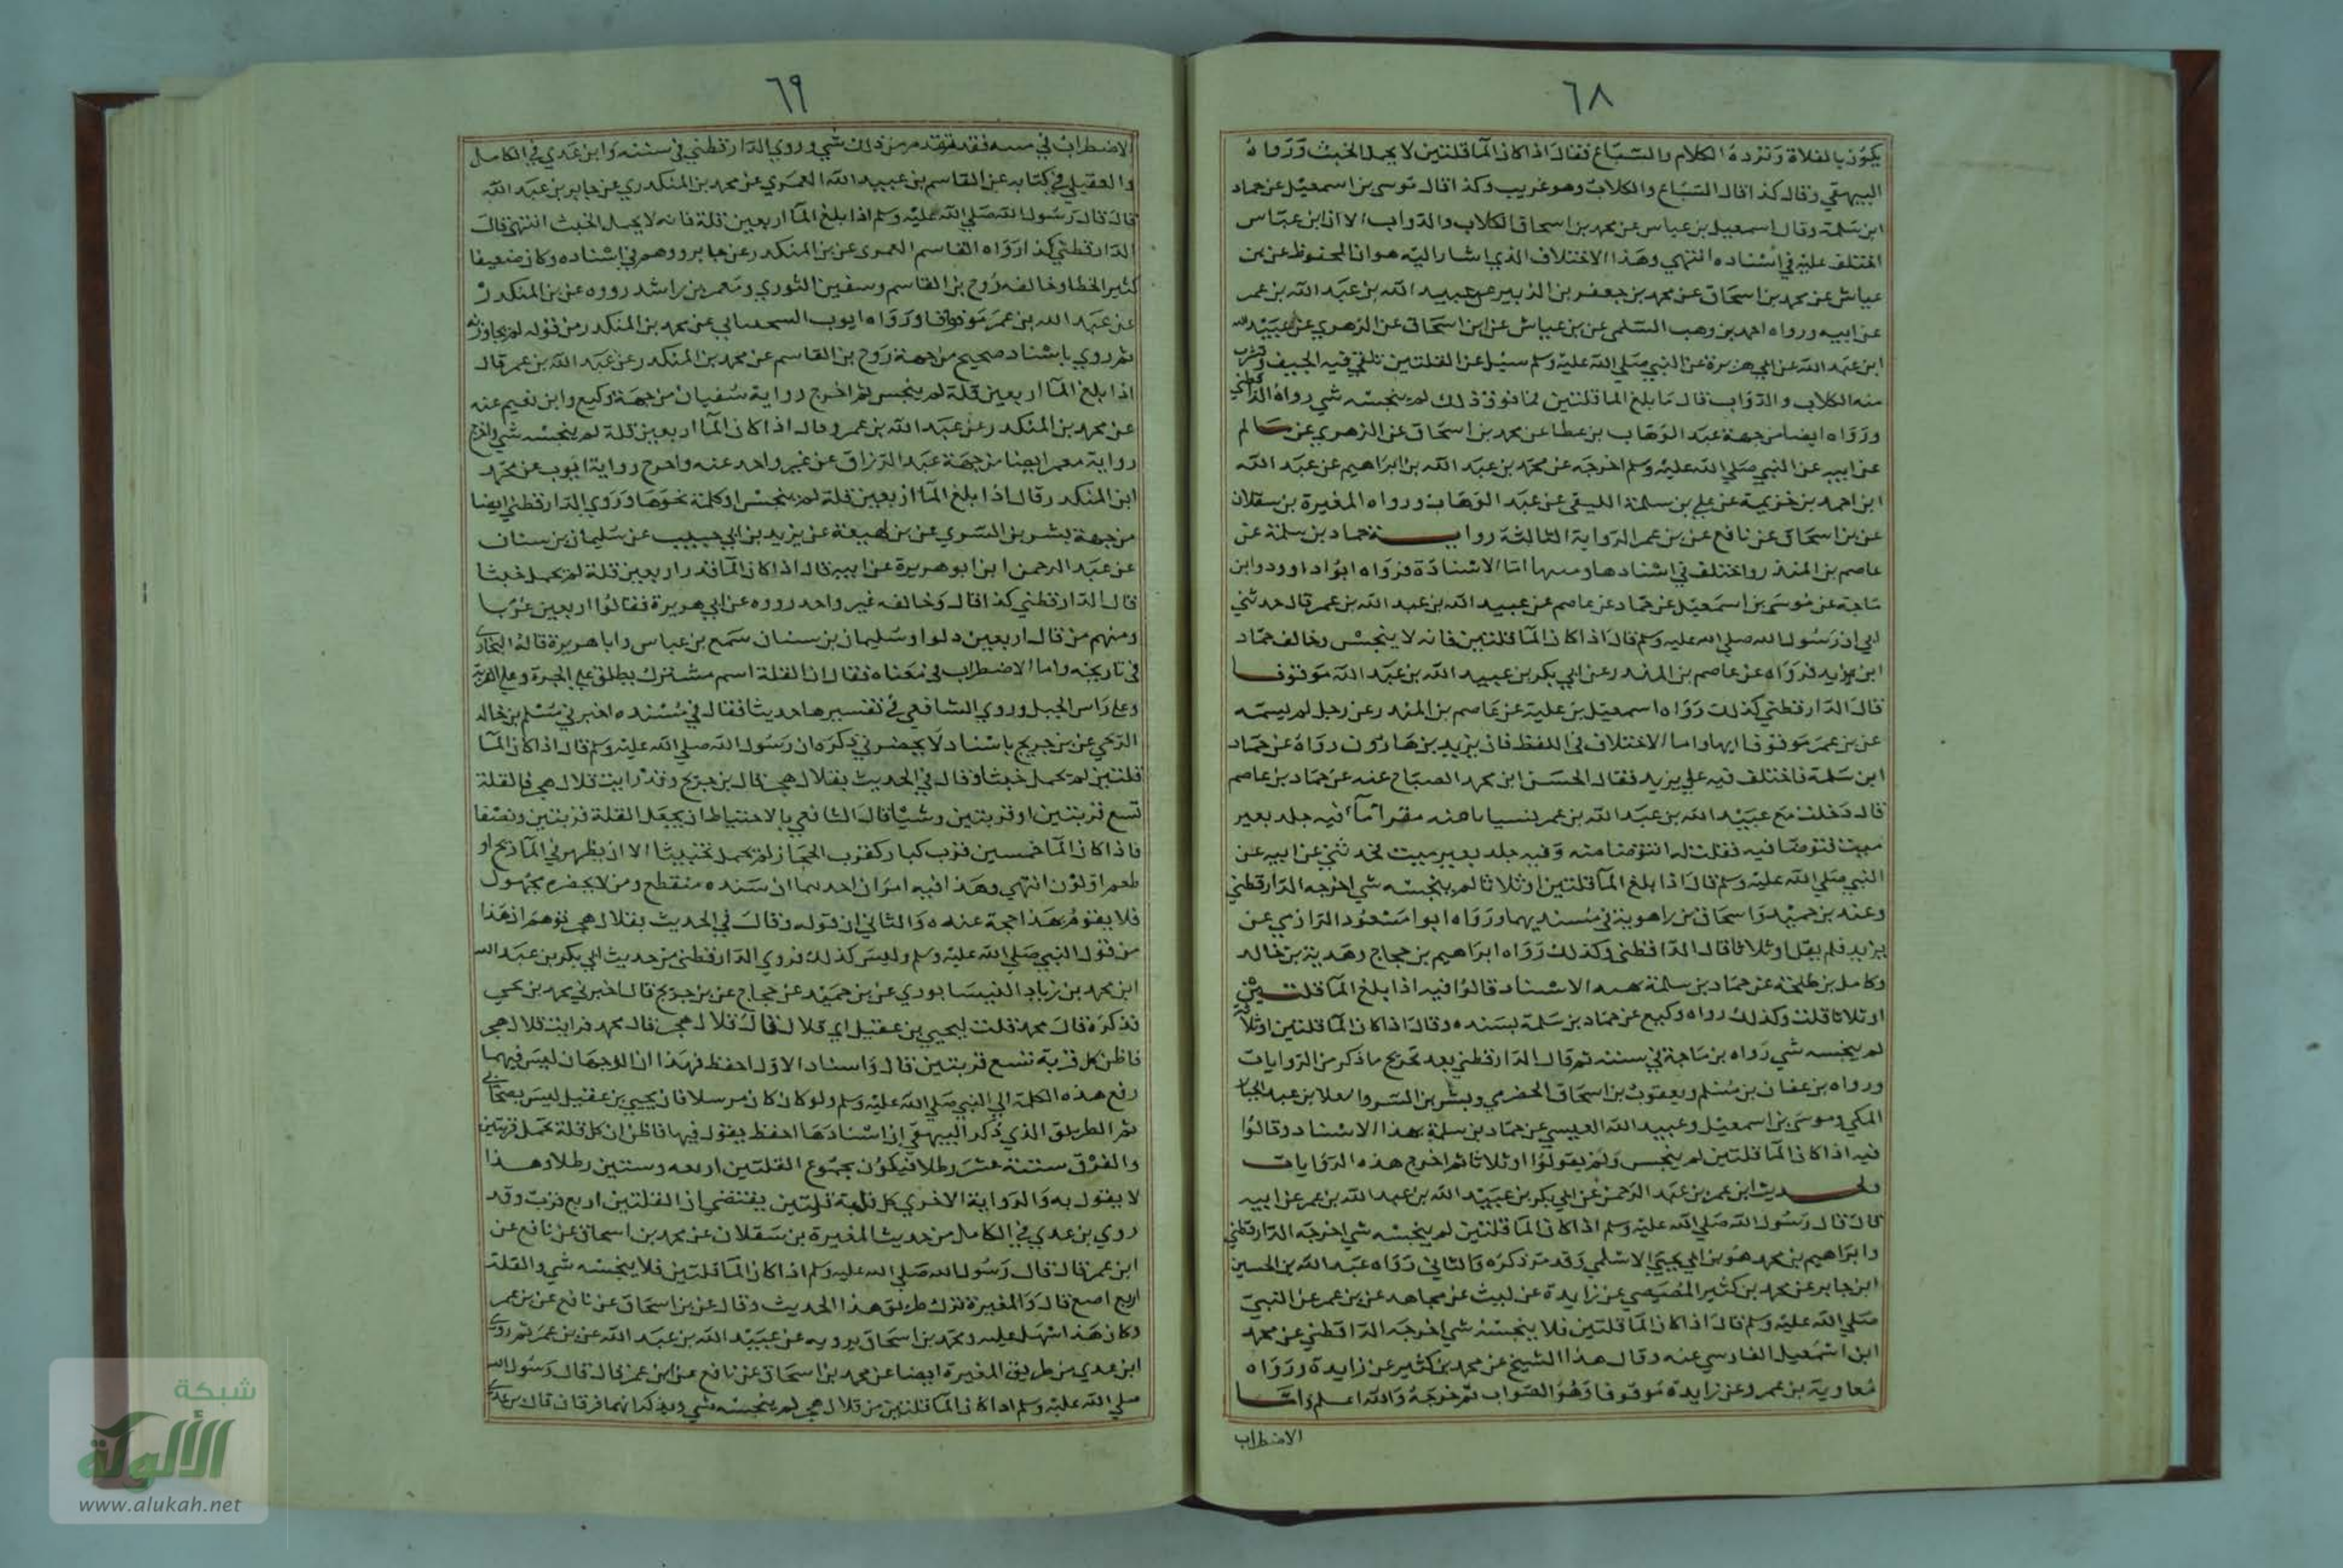 ٦٨
يكون بالفلاة وترده الكلام والسباع فقال اذا كان الماقلتين لا يحمل الخبث ورواه
البيهقي وقال كذا قال السباع والكلاب وهو غريب وكذا قال موسى بن اسمعيل عن حماد
ابن سلمة وقال اسمعيل بن عياس عن محمد بن اسحاق الكلاب والدواب الا ان ابن عباس
اختلف عليه في اسناده انتهي وهذا الاختلاف الذي اشار اليه هو ان المحفوظ عن بن
عياش عن محمد بن اسحاق عن محمد بن جعفر بن الزبير عن عبيد الله بن عبد الله بن عمر
عن ابيه ورواه احمد بن وهب السلمى عن بن عياش عن ابن اسحاق عن الزهري عن عبيد الله
ابن عبد الله عن ابي هريرة عن النبي صلي الله عليه وسلم سيل عن القلتين تلقي فيه الجيف وتشرب
منه الكلاب والدواب قال ما بلغ الماقلتين فما فوق ذلك لم ينجسه شي رواه الدارقطني
ورواه ايضا من جهة عبد الوهاب بن عطا عن محمد بن اسحاق عن الزهري عن سالم
عن ابيه عن النبي صلي الله عليه وسلم اخرجه عن محمد بن عبد الله بن ابراهيم عن عبد الله
ابن احمد بن خزيمة عن علي بن سلمة الليقى عن عبد الوهاب ورواه المغيرة بن سقلان
عن بن اسحاق عن نافع عن بن عمر الرواية الثالثة رواية حماد بن سلمة عن
عاصم بن المنذر واختلف في اسنادها ومتنها اما الاسناد فرواه ابوا داوود وابن
ماجة عن موسى بن اسمعيل عن حماد عن عاصم عن عبيد الله بن عبد الله بن عمر قال حدثني
ابي ان رسول الله صلي الله عليه وسلم قال اذا كان الماقلتين فانه لا ينجس وخالف حماد
ابن يزيد فرواه عن عاصم بن المنذر عن ابي بكر بن عبيد الله بن عبد الله موقوفا
قال الدارقطني كذلك رواه اسمعيل بن علية عن عاصم بن المنذر عن رجل لم يسمه
عن بن عمر موقوفا ايها واما الاختلاف في اللفظ فان يزيد بن هارون رواه عن حماد
ابن سلمة فاختلف فيه علي يزيد فقال الحسن ابن محمد الصباح عنه عن حماد بن عاصم
قال دخلت مع عبيد الله بن عبد الله بن عمر فيه جلد بعير
ميت فتوضا فيه فقلت له اتتوضا منه وفيه جلد بعير ميت فحدثني عن ابيه عن
النبي صلي الله عليه وسلم قال اذا بلغ الما قلتين او ثلاثا لم ينجسه شي اخرجه الدارقطني
وعبد بن حميد واسحاق بن راهوية في مسنديهما ورواه ابوا مسعود الرازي عن
يزيد فلم يقل او ثلاثا قال الداقطني وكذلك رواه ابراهيم بن حجاج وهدبة بن خالد
وكامل بن طلحة عن حماد بن سلمة بهذا الاسناد قالوا فيه اذا بلغ الماقلتين
او ثلاثا قلت وكذلك رواه وكيع عن حماد بن سلمة بسنده وقال اذا كان الماقلتين او ثلاثة
لم ينجسه شي رواه بن ماجة في سننه ثم قال الدارقطني بعد تخريج ما ذكر من الروايات
ورواه بن عفان بن مسلم ويعقوب بن اسحاق الحضرمي وبشر بن السري والعلا بن عبد الجبار
المكي وموسى بن اسمعيل وعبيد الله العيسي عن حماد بن سلمة بهذا الاسناد وقالوا
فيه اذا كان الماقلتين لم ينجس ولم يقولوا او ثلاثا ثم اخرج هذه الروايات
ابن عمر بن عبد الرحمن عن ابي بكر بن عبيد الله بن عبد الله بن عمر عن ابيه
قال قال رسول الله صلي الله عليه وسلم اذا كان الماقلتين لم ينجسه شي اخرجه الدارقطني
وابراهيم بن محمد هو بن ابي يحيي الاسلمي وقد مر ذكره والثاني رواه عبد الله بن الحسين
ابن جابر عن محمد بن كثير المصيصي عن زايدة عن ليث عن مجاهد عن بن عمر عن النبي
صلي الله عليه وسلم قال اذا كان الماقلتين فلا ينجسه شي اخرجه الداقطني عن محمد
ابن اسمعيل الفارسي عنه وقال هذا الشيخ عن محمد بن كثير عن زايدة ورواه
معاوية بن عمر وعن زايدة موقوفا وهو الصواب ثم خرجه والله اعلم واما
الاضطراب
٦٩
الاضطراب في متنه فقد تقدم من ذلك شي وروي الدارقطني في سننه وابن عدي في الكامل
والعقيلي في كتابه عن القاسم بن عبيد الله العمري عن محمد بن المنكدري عن جابر بن عبد الله
قال قال رسول الله صلي الله عليه وسلم اذا بلغ الما اربعين قلة فانه لا يحمل الخبث انتهى قال
الدارقطني كذا رواه القاسم العمرى عن بن المنكدر عن جابر ووهم في اسناده وكان ضعيفا
كثير الخطا وخالفه روح بن القاسم وسفين الثوري ومعمر بن راشد رووه عن بن المنكدر
عن عبد الله بن عمر موقوفا ورواه ايوب السحساني عن محمد بن المنكدر من قوله لم يجاوزه
ثم روي باسناد صحيح من جهة روح بن القاسم عن محمد بن المنكدر عن عبد الله بن عمر قال
اذا بلغ الما اربعين قلة لم ينجس ثم اخرج رواية سفيان من جهة وكيع وابن نعيم عنه
عن محمد بن المنكدر عن عبد الله بن عمر وقال اذا كان الما اربعين قلة لم ينجسه شي واخرج
رواية معمر ايضا من جهة عبد الرزاق عن غير واحد عنه واخرج رواية ايوب عن محمد
ابن المنكدر وقال اذا بلغ الما اربعين قلة لم ينجس او كلمة نحوها وروي الدارقطني ايضا
من جهة بشر بن السري عن بن لهيعة عن يزيد بن ابي حبيب عن سليمان بن سنان
عن عبد الرحمن ابن ابو هريرة عن ابيه قال اذا كان الما قدر اربعين قلة لم يحمل خبثا
قال الدارقطني كذا قال وخالفه غير واحد رووه عن ابي هريرة فقالوا اربعين غربا
ومنهم من قال اربعين دلوا وسليمان بن سنان سمع بن عباس وابا هريرة قاله البخاري
في تاريخه واما الاضطراب في معناه فقال ان القلة اسم مشترك يطلق علي الجرة وعلى القربة
وعلي راس الجبل وروي الشافعي في تفسيرها حديثا فقال في مسنده اخبرني مسلم بن خالد
الزنجي عن بن جريج باسناد لا يحضرني ذكره ان رسول الله صلي الله عليه وسلم قال اذا كان الما
قلتين لم يحمل خبثا وقال في الحديث بقلال هجر قال بن جريج وقد رايت قلال هجر فالقلة
تسع قربتين او قربتين وشيا قال الشافعي بالاحتياط ان يجعل القلة قربتين ونصفا
فاذا كان الما خمسين قرب كبار كقرب الحجاز لم يحمل تخبيثا الا ان يظهر في الما ريح او
طعم او لون انتهي وهذا فيه امران احدهما ان سنده منقطع ومن لا يحضره مجهول
فلا يقوم بهذا حجة عنده والثاني ان قوله وقال في الحديث بقلال هجر توهم ان هذا
من قول النبي صلي الله عليه وسلم وليس كذلك فروي الدارقطني من حديث ابي بكر بن عبد الله
ابن محمد بن زياد النيسابوري عن بن حميد عن حجاج عن بن جريج قال اخبرني محمد بن يحي
فذكره قال محمد قلت ليحيي بن عقيل اي قلال قال قلال هجر قال محمد فرايت قلال هجر
فاظن كل قربة تسع قربتين قال واسناد الاول احفظ فهذا ان الوجهان ليس فيهما
رفع هذه الكلمة الي النبي صلي الله عليه وسلم ولو كان كان مرسلا فان يحيي بن عقيل ليس بصحابي
ثم الطريق الذي ذكر البيهقي ان اسنادها احفظ يقول فيها فاظن ان كل قلة تحمل قربتين
والفرق ستتة عشر رطلا فيكون مجموع القلتين اربعه وستين رطلا وهذا
لا يقول به والرواية الاخري كل قربة قلتين يقتضي ان القلتين اربع قرب وقد
روي بن عدي في الكامل من حديث المغيرة بن سقلان عن محمد بن اسحاق عن نافع عن
ابن عمر قال قال رسول الله صلي الله عليه وسلم اذا كان الماقلتين فلا ينجسه شي والقلة
اربع اصع قال والمغيرة ترك طريق هذا الحديث وقال عن بن اسحاق عن نافع عن بن عمر
وكان هذا اسهل عليه ومحمد بن اسحاق يرويه عن عبيد الله بن عبد الله عن بن عمر ثم روي
ابن عدي من طريق المغيرة ايضا عن محمد بن اسحاق عن نافع عن ابن عمر قال قال رسول الله
صلي الله عليه وسلم اذا كان الماقلتين من قلال هجر لم ينجسه شي وذكر انهما فرقان قال بن عدي
شبكة
الألوكة
www.alukah.net